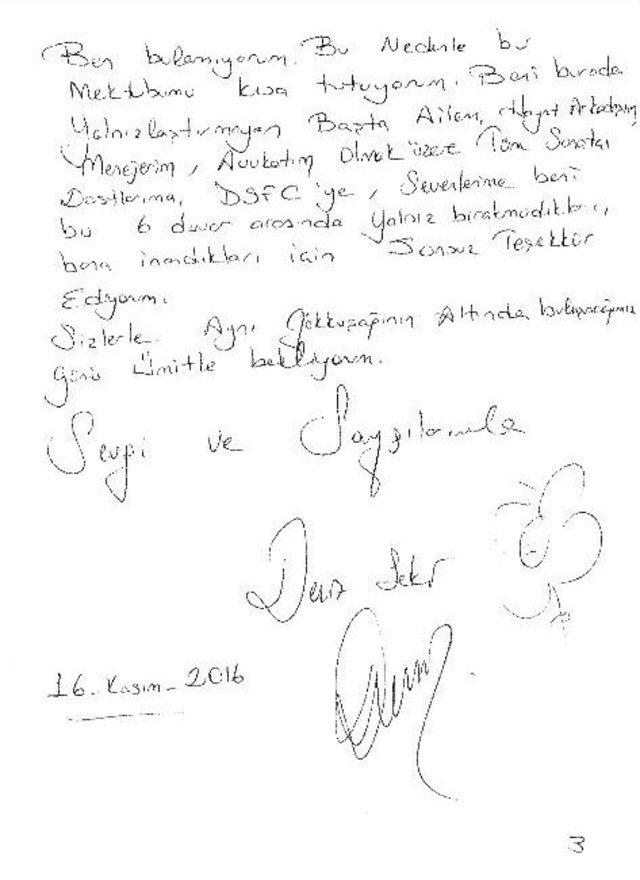 Ben bulamıyorum. Bu Nedenle bu
Mektubumu kısa tutuyorum. Beni burada
Yalnızlaştırmayan Başta Ailem, Hayat Arkadaşım
Menejerim, Avukatım Olmak üzere Tüm Sanatçı
Dostlarıma, DSFC'ye, Sevenlerime beni
bu 6 duvar arasında Yalnız bırakmadıkları,
bana inandıkları için Sonsuz Teşekkür
Ediyorum.
Sizlerle Aynı Gökkuşağının Altında buluşacağımız
Günü Ümitle bekliyorum.
Sevgi ve Saygılarımla
Deniz Seki
16. Kasım - 2016
3